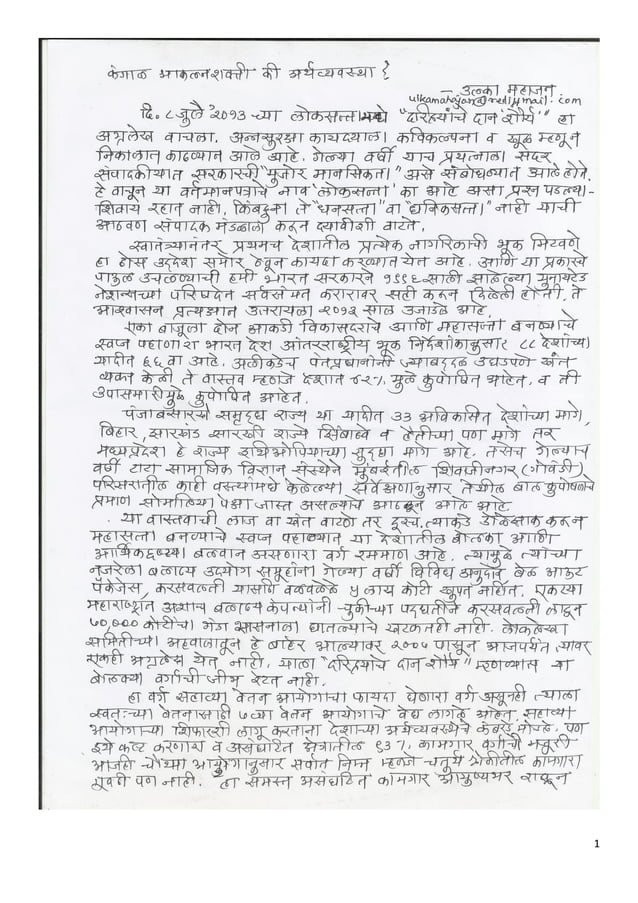 कंगाल आकलनशक्ती की अर्थव्यवस्था?
– उलका महाजन
ulkamahajan@rediffmail.com
दि. ८ जुलै २०१३ च्या लोकसत्तामध्ये "दारिद्र्याचे दान शौर्य" हा
अग्रलेख वाचला. अन्नसुरक्षा कायद्याला कविकल्पना व खूळ म्हणून
निकालात काढण्यात आले आहे. गेल्या वर्षी याच प्रयत्नाला सदर
संपादकीयात सरकारची "मुजोर मानसिकता" असे संबोधण्यात आले होते.
हे वाचून या वर्तमानपत्राचे नाव 'लोकसत्ता' का आहे असा प्रश्न पडल्या-
शिवाय रहात नाही. किंबहुना ते "धनसत्ता" वा "धनिकसत्ता" नाही याची
आठवण संपादक मंडळाला करून द्यावीशी वाटते.
स्वातंत्र्यानंतर प्रथमच देशातील प्रत्येक नागरिकाची भूक मिटवणे
हा ठोस उद्देश समोर ठेवून कायदा करण्यात येत आहे. आणि या प्रकारचे
पाऊल उचलण्याची हमी भारत सरकारने १९९६ साली झालेल्या युनायटेड
नेशन्सच्या परिषदेत सर्वसंमत करारावर सही करून दिलेली होती. ते
आश्वासन प्रत्यक्षात उतरायला २०१३ साल उजाडले आहे.
एका बाजूला दोन आकडी विकासदराचे आणि महासत्ता बनण्याचे
स्वप्न पहाणारा भारत देश आंतरराष्ट्रीय भूक निर्देशांकानुसार ८८ देशांच्या
यादीत ६६ वा आहे. अलीकडेच पंतप्रधानांनी ज्याबद्दल उघडपणे खंत
व्यक्त केली ते वास्तव म्हणजे देशात ४२% मुले कुपोषित आहेत. व ती
उपासमारीमुळे कुपोषित आहेत.
पंजाबसारखे समृद्ध राज्य या यादीत ३३ अविकसित देशांच्या मागे,
बिहार, झारखंड सारखी राज्ये झिंबाब्वे व हैतीच्या पण मागे तर
मध्यप्रदेश हे राज्य इथिओपियाच्या सुद्धा मागे आहे. तसेच गेल्याच
वर्षी टाटा सामाजिक विज्ञान संस्थेने मुंबईतील शिवाजीनगर (गोवंडी)
परिसरातील काही वस्त्यांमध्ये केलेल्या सर्वेक्षणानुसार तेथील बाल कुपोषणाचे
प्रमाण सोमालिया पेक्षा जास्त असल्याचे आढळून आले आहे.
या वास्तवाची लाज वा खंत वाटणे तर दूरच, त्याकडे डोळेझाक करून
महासत्ता बनण्याचे स्वप्न पहाण्यात या देशातील बोलका आणि
आर्थिकदृष्ट्या बलवान असणारा वर्ग रममाण आहे. त्यामुळे त्यांच्या
नजरेला बलाढ्य उद्योग समूहांना गेल्या वर्षी विविध अनुदान, बेल आऊट
पॅकेजेस, करसवलती यासाठी वळवलेले ५ लाख कोटी खुपत नाहीत. एकट्या
महाराष्ट्रात अशाच बलाढ्य कंपन्यांनी चुकीच्या पद्धतीने करसवलती लाटून
७०,००० कोटींचा गंडा शासनाला घातल्याचे खटकतही नाही. लोकलेखा
समितीच्या अहवालातून हे बाहेर आल्यावर २००५ पासून आजपर्यंत त्यावर
एकही अग्रलेख येत नाही. याला "दारिद्र्याचे दान शौर्य" म्हणण्यास या
बोलक्या वर्गाची जीभ रेटत नाही.
हा वर्ग सहाव्या वेतन आयोगाचा फायदा घेणारा वर्ग असूनही त्याला
स्वतःच्या वेतनासाठी ७व्या वेतन आयोगाचे वेध लागले आहेत. सहाव्या
आयोगाच्या शिफारशी लागू करताना देशाच्या अर्थव्यवस्थेचे कंबरडे मोडले. पण
इथे कष्ट करणारा व असंघटित क्षेत्रातील ९३% कामगार वर्गाची मजुरी
आजही चौथ्या आयोगानुसार सर्वात निम्न म्हणजे चतुर्थ श्रेणीतील कामगारा
एवढी पण नाही. हा समस्त असंघटित कामगार आयुष्यभर राबून
1